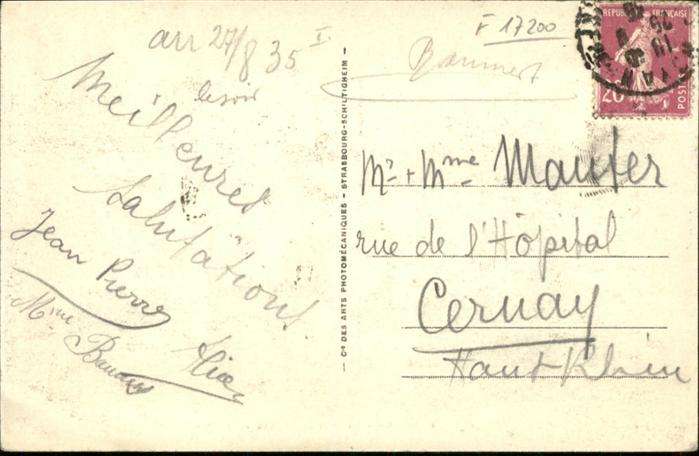 arr 27/8 35 I
le soir
Meilleures
Salutations
Jean Pierre
Mme
Cie DES ARTS PHOTOMÉCANIQUES - STRASBOURG-SCHILTIGHEIM
F 17200
RÉPUBLIQUE FRANÇAISE
20
POSTES
Mr + Mme Maurer
rue de l'Hôpital
Cernay
Haut-Rhin